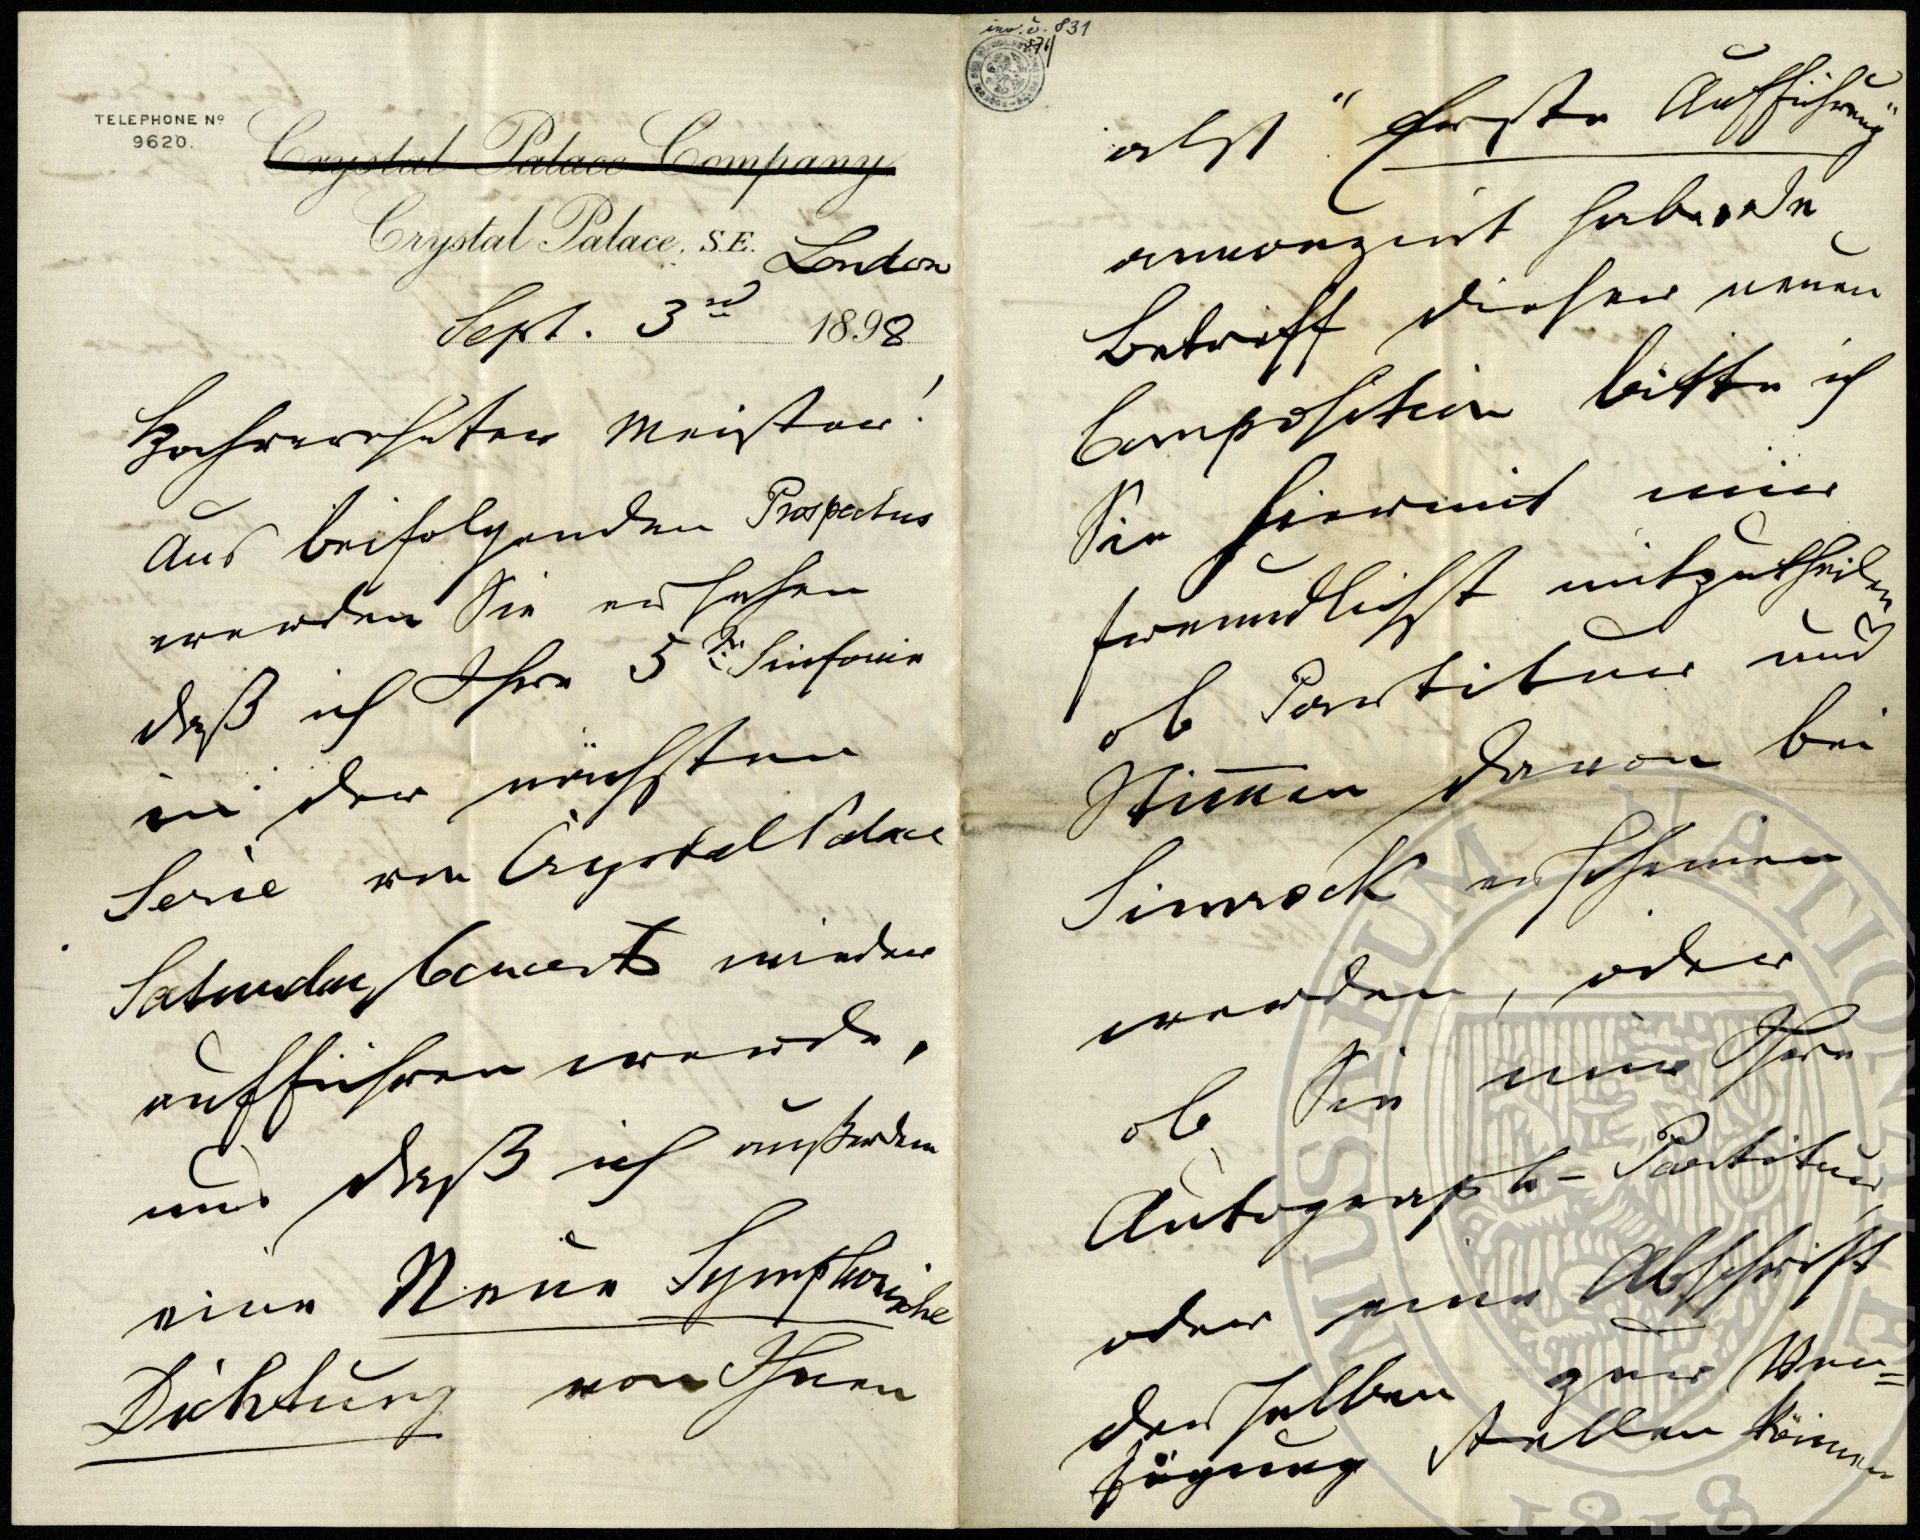 TELEPHONE Nº
9620.
Crystal Palace Company
Crystal Palace, S.E. London
Sept. 3rd 1898
Hochverehrter Meister!
Aus beifolgenden Prospectus
werden Sie ersehen
daß ich Ihre 5te Sinfonie
in der nächsten
Serie von Crystal Palace
Saturday Concerts wieder
aufführen werde,
und daß ich außerdem
eine Neue Symphonische
Dichtung von Ihnen
inv. č. 831
als "Erste Aufführung"
annonzirt habe.
Betreff dieser neuen
Composition bitte ich
Sie hiermit mir
freundlichst mitzutheilen
ob Partitur und
Stimmen davon bei
Simrock erscheinen
werden, oder
ob Sie mir Ihre
Autograph-Partitur,
oder eine Abschrift
derselben zur Ver=
fügung stellen können
MUSAEUM NATIONALE
1818